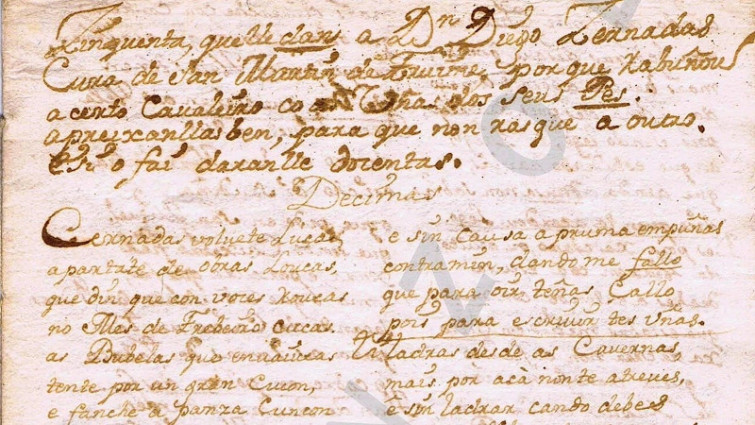 Zinquenta, quelle dan a Dn. Diego Zernadas
Cura de San Martiñ de Fruime, porque rabuñou
a certo Cavaleiro co as Uñas dos seus Pes.
apreixanllas ben, para que non rasque a outro.
e si o fai daranlle docentas.
Decimas
Cernadas volvete Lucas,
apartate de obras Loucas,
que din que con voces roucas
no Mes de Frebeiro cucas.
as Bubelas que
tente por un gran Cucon,
e fanche a panza
e sin causa a pruma empuñas
contra min, dandome fallo
que para oir teñas Callo
pois para escrivir tes uñas.
Ladras desde as Cavernas,
mais por acà non te atreves,
e sin ladrar cando debes